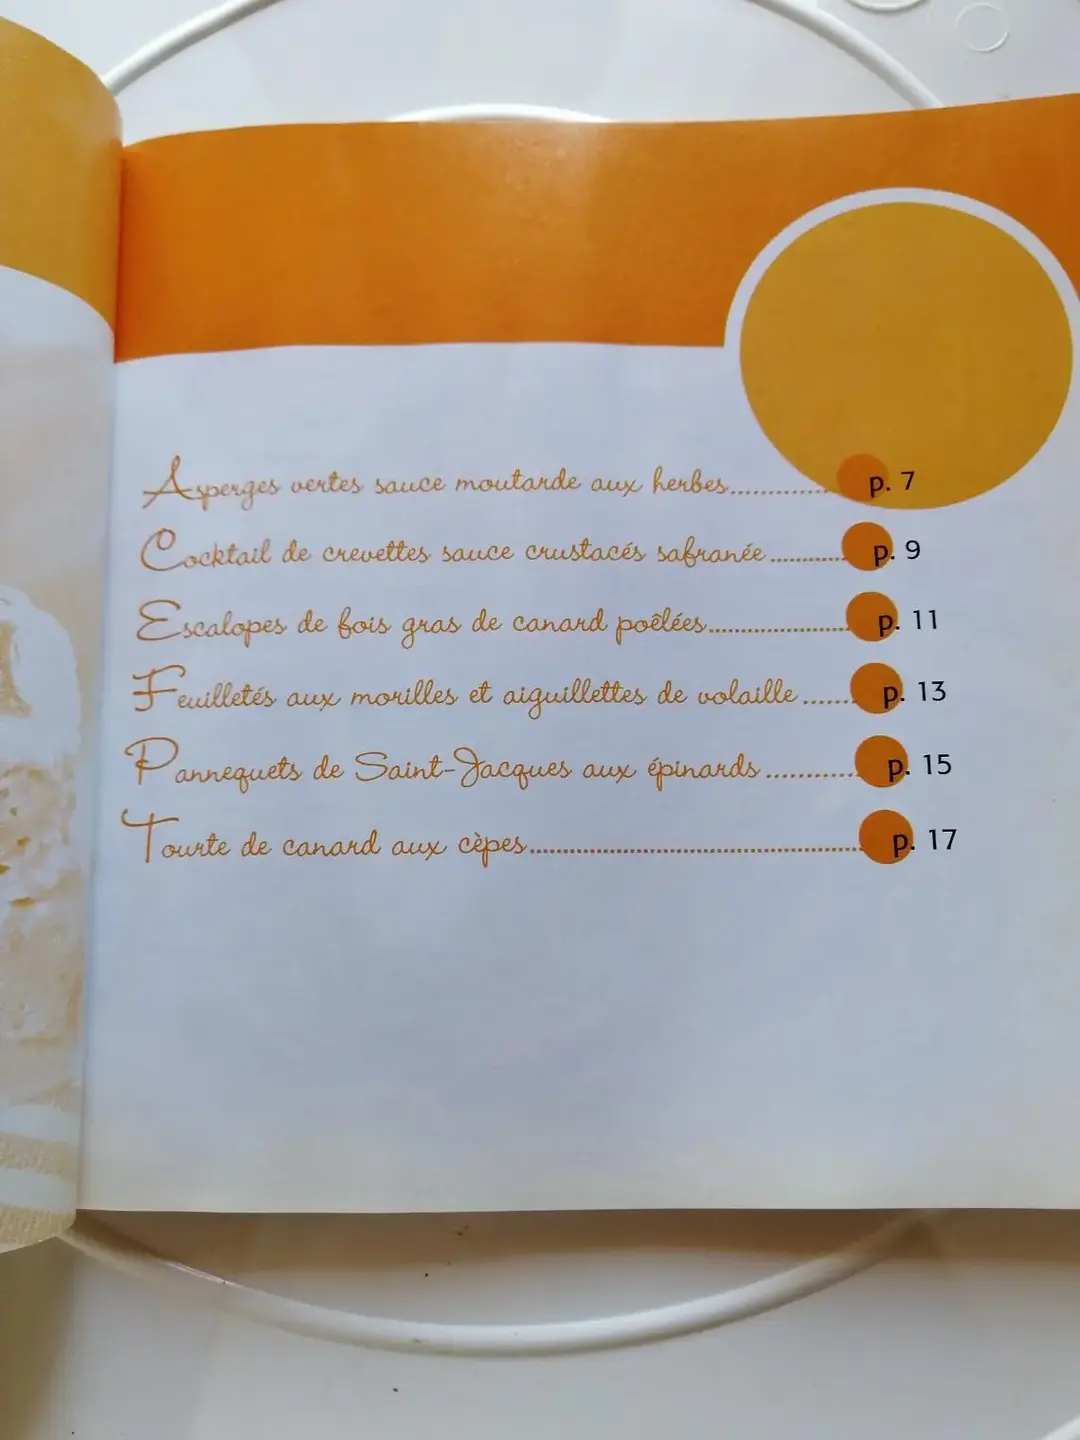 Asperges vertes sauce moutarde aux herbes.............. p. 7
Cocktail de crevettes sauce crustacés safranée........... p. 9
Escalopes de fois gras de canard poêlées..................... p. 11
Feuilletés aux morilles et aiguillettes de volaille....... p. 13
Pannequets de Saint-Jacques aux épinards............. p. 15
Tourte de canard aux cèpes.................................................. p. 17